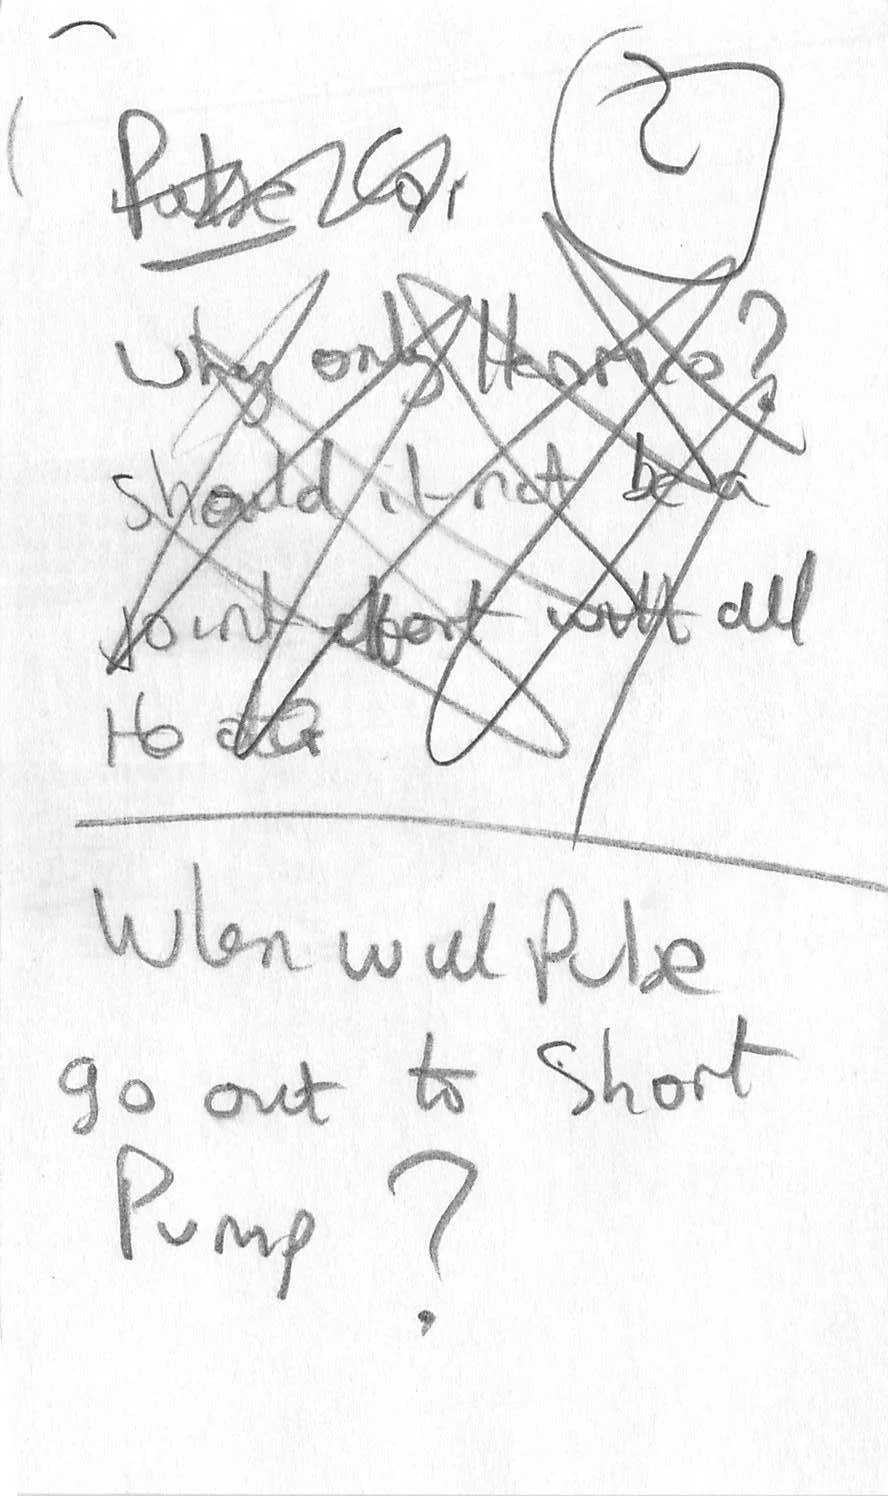 2
Pulse
Why only Henrico?
should it not be a
joint effort with all
When will Pulse
go out to Short
Pump?